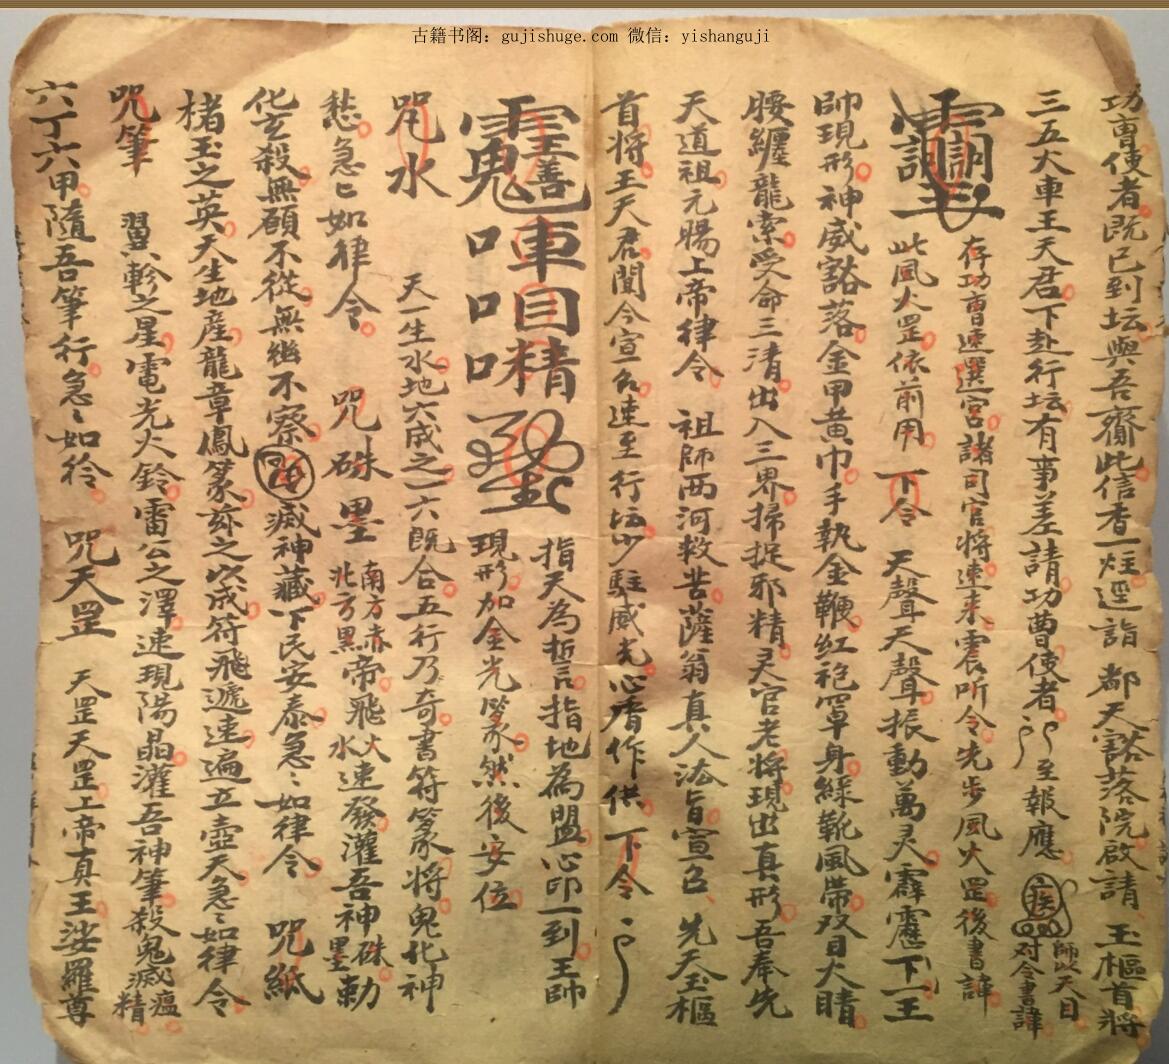 古籍书阁：gujishuge.com 微信：yishanguji
功曹使者既已到坛与吾齎此信香一炷逕詣都天豁落院啟請玉樞首將
三五大車王天君下赴行坛有事差請功曹使者至報應
師以天目
对令書諱
存功曹速選宮諸司官將速来震听令先步風火罡後書諱
此風火罡依前用下令天聲天聲振動萬灵霹靂下一王
帥現形神威豁落金甲黄巾手執金鞭红袍罩身綠靴風帶双目大睛
腰纏龍索受命三清出入三界掃捉邪精灵官老將現出真形吾奉先
天道祖元陽上帝律令祖師西河救苦薩翁真人法旨宣召先天玉樞
首將王天君聞今宣召速至行坛少駐威光心香作供下令
車目精
口口口
指天為誓言指地為盟心印一到王帥
現形加金光篆然後安位
咒水天一生水地六成之一六既合五行乃奇書符篆將鬼化神
愁急匕如律令咒硃墨南方赤帝飛火速發灌吾神硃勅
北方黑水墨
化玄殺無碩不從無幽不察滅神藏下民安泰急急如律令咒紙
楮玉之英天生地産龍章鳳篆妳之以成符飛遞速遍五壺天急急如律令
咒筆翼軫之星電光火鈴雷公之澤速現陽晶灌吾神筆殺鬼滅瘟精
六丁六甲隨吾筆行急急如衿咒天罡天罡天罡上帝真王娑羅尊